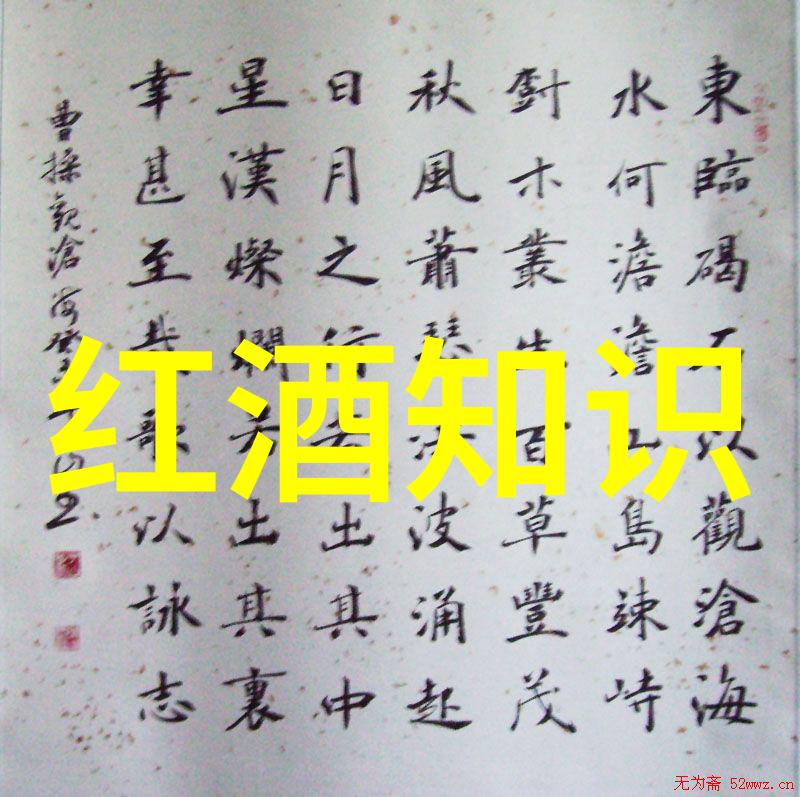 東臨碣石以觀滄海
水何澹澹山島竦峙
尌木叢生百草豐茂
秋風蕭瑟洪波涌起
日月之行若出其中
星漢燦爛若出其裏
幸甚至哉歌以詠志
曹操觀滄海
红酒知识
无为斋 52wwz.cn